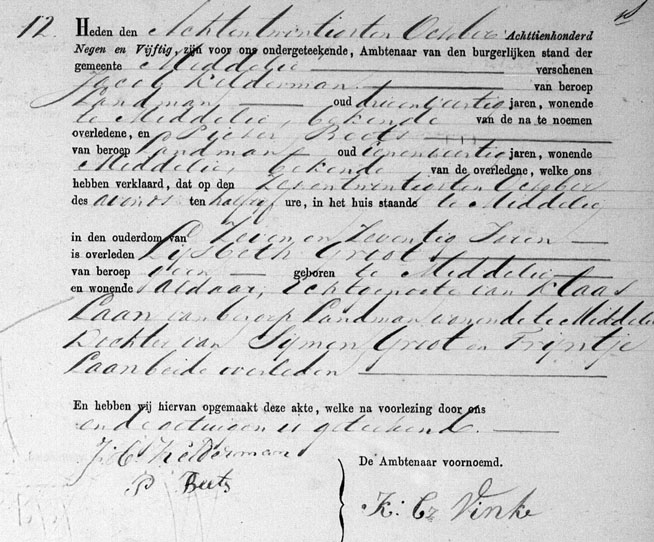 12.
Heden den Achtentwintigsten October Achttienhonderd
Negen en Vijftig, zijn voor ons ondergeteekende, Ambtenaar van den burgerlijken stand der
gemeente Middelie verschenen
Jacob Kelderman van beroep
Landman oud drieenveertig jaren, wonende
te Middelie, bekende van de na te noemen
overledene, en Pieter Beets
van beroep Landman oud eenenveertig jaren, wonende
Middelie, bekende van de overledene, welke ons
hebben verklaard, dat op den Zevenentwintigsten October
des avonds ten half ure, in het huis staande te Middelie
in den ouderdom van Zeven en Zeventig Jaren
is overleden Lijsbeth Groot
van beroep geen geboren te Middelie
en wonende aldaar, Echtgenoote van Klaas
Laan van beroep Landman wonende te Middelie
Dochter van Sijmen Groot en Trijntje
Laan beide overleden
En hebben wij hiervan opgemaakt deze akte, welke na voorlezing door ons
en de getuigen is geteekend.
Kelderman
P Beets
De Ambtenaar voornoemd.
K. Cz Vinke